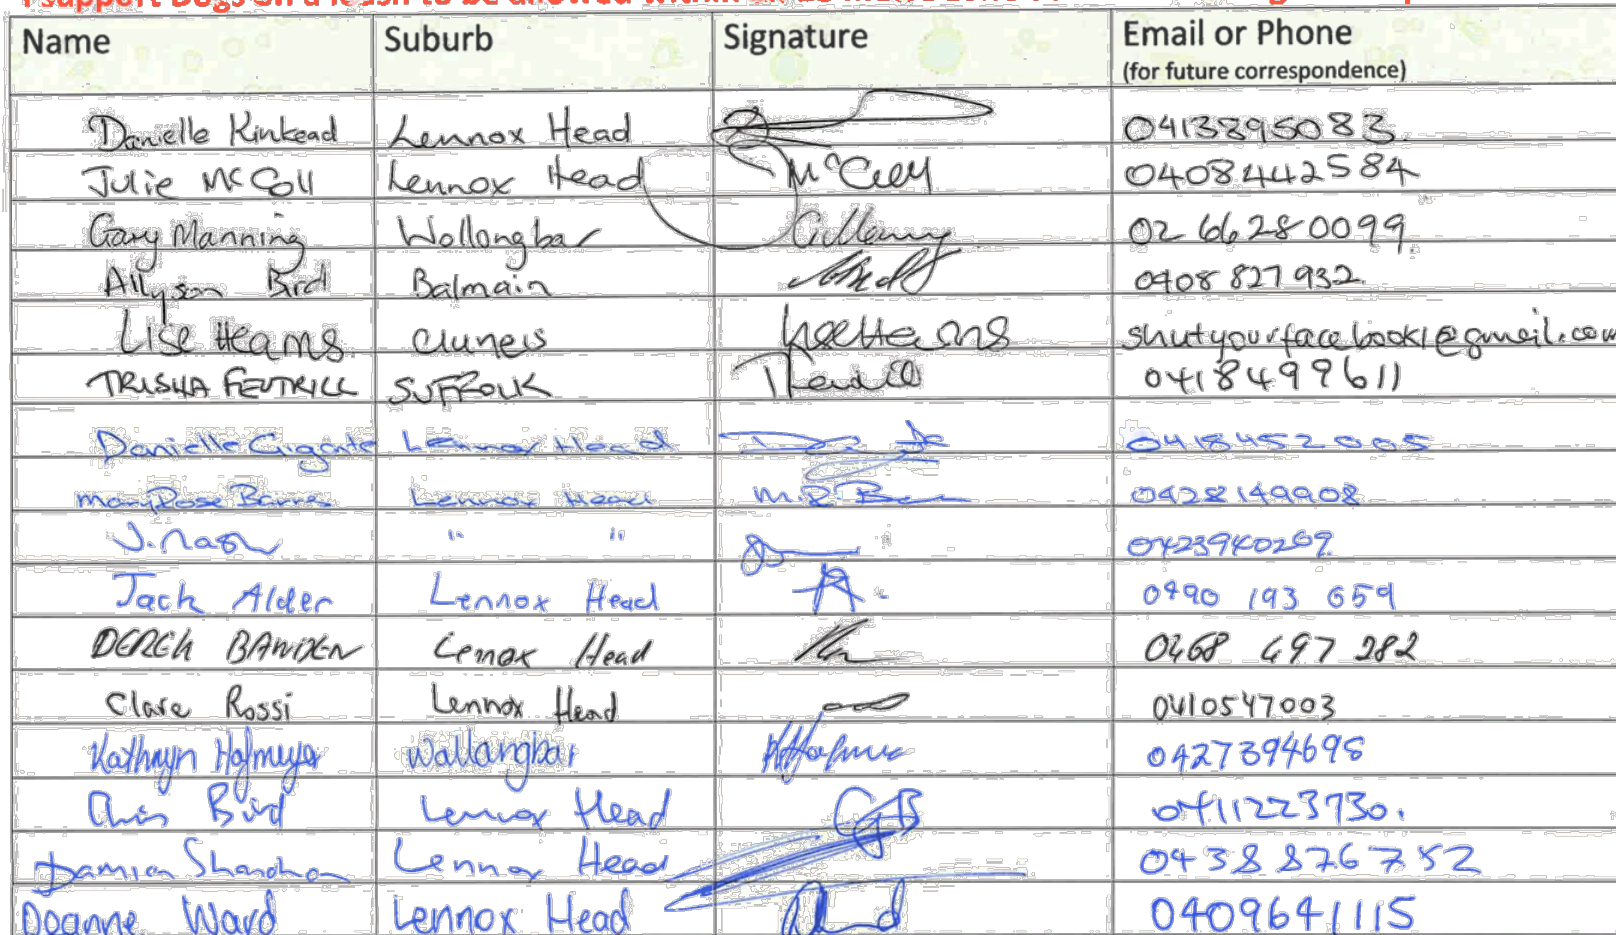 Name Suburb Signature Email or Phone
(for future correspondence)
Danielle Kinkead Lennox Head 0413895083
Julie McColl Lennox Head 0408442584
Gary Manning Wollongbar 02 66280099
Allyson Bird Balmain 0408 827 932
Lise Heams Clunes shutyourfacebook1@gmail.com
TRISHA FEUTRILL SUFFOLK 0418499611
Danielle Gigante Lennox Head 0418452005
Mary Rose Barnes Lennox Head M.R. 0428149908
J. Nash " " 0423940269
Jack Alder Lennox Head 0490 193 659
DEREK Lennox Head 0468 497 282
Clare Rossi Lennox Head 0410547003
Kathryn Hofmeyr Wallangbar 0427394698
Chris Bird Lennox Head CB 0411223730.
Damien Shanahan Lennox Head 0438876752
Doanne Ward Lennox Head 0409641115